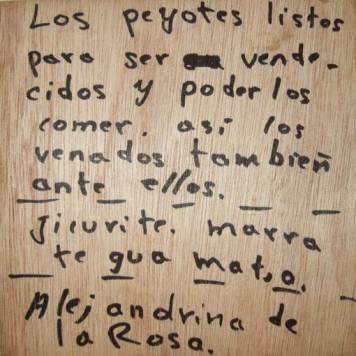 Los peyotes listos
para ser vende-
cidos y poder los
comer. así los
venados también
ante ellos.
jicurite. marra
te gua mat,a.
Alejandrina de
la Rosa.